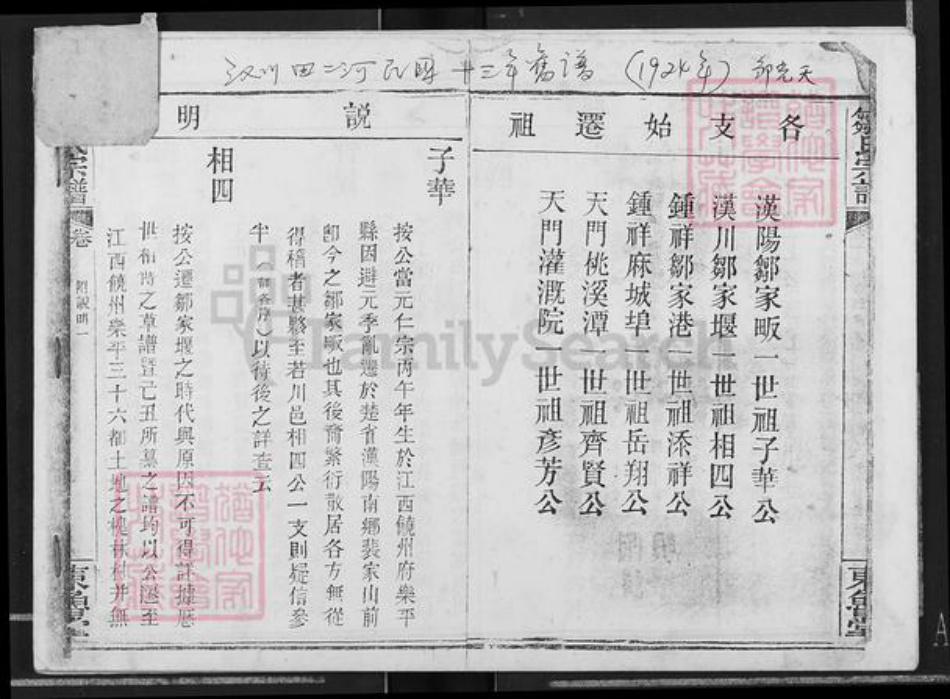 汉川田二河民國十三年舊谱 (1924年) 邹光天
各支始遷祖
漢陽鄒家畈一世祖子華公
漢川鄒家堰一世祖相四公
鍾祥鄒家港一世祖添祥公
鍾祥麻城埠一世祖岳翔公
天門桃溪潭一世祖齊賢公
天門灌溉院一世祖彥芳公
說明
子華
按公當元仁宗丙午年生於江西饒州府樂平
縣因避元季亂遷於楚省漢陽南鄉裴家山前
卽今之鄒家畈也其後裔繁衍散居各方無從
得稽者甚夥至若川邑相四公一支則疑信參
半(詳各序)以待後之詳查云
相四
按公遷鄒家堰之時代與原因不可得詳據歷
世相蒔之草譜暨己丑所纂之譜均以公遷至
江西饒州樂平三十六都土地之槐林村并無
宗譜
卷
附說明一
東魯堂
鄒氏宗譜
東魯堂
FamilySearch